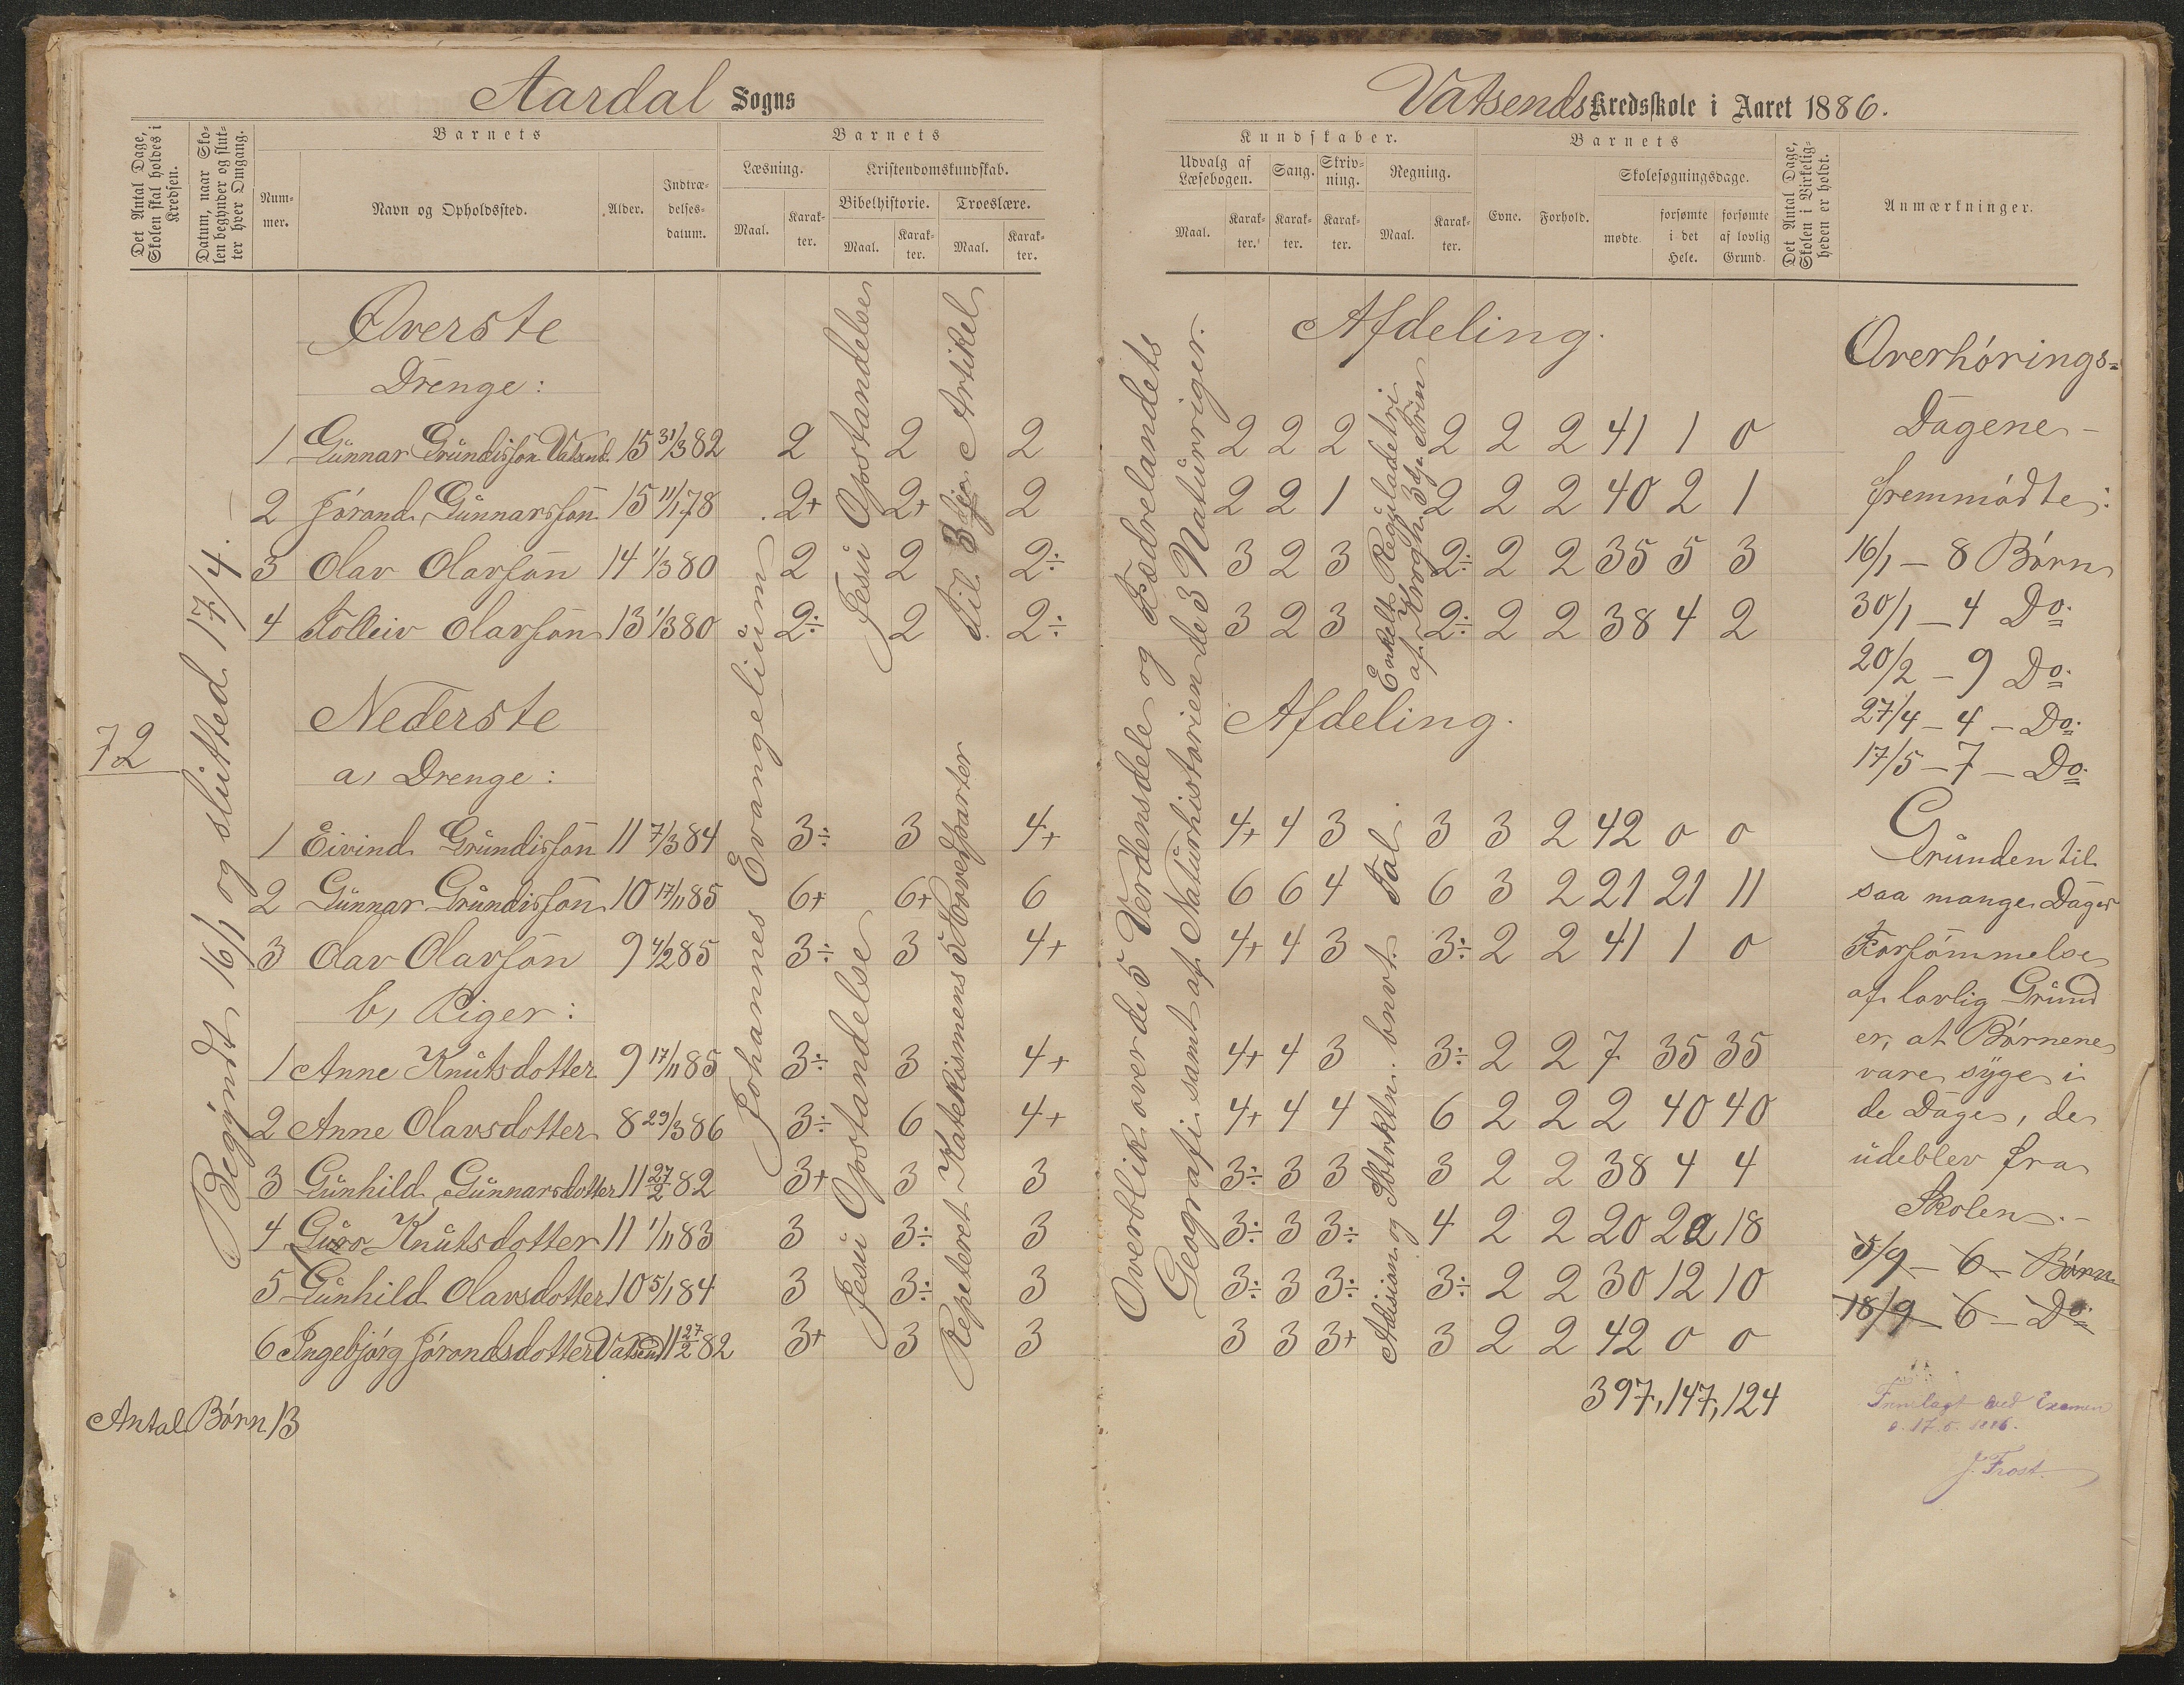 Aardal Sogns
Det Antal Dage, Skolen skal holdes i Kredsen.
Datum, naar Skolen begynder og slutter hver Omgang.
Barnets
Nummer.
Navn og Opholdssted.
Alder.
Indtrædelsesdatum.
Barnets
Læsning.
Maal.
Karakter.
Kristendomskundskab.
Bibelhistorie.
Maal.
Karakter.
Troeslære.
Maal.
Karakter.
72
Begyndt 16/1 og sluttet 17/4.
Johannes Evangelium
Jesu Opstandelse
Til 3dje Artikel
Jesu Opstandelse
Repeteret Katekismens 5 Hovedparter
Øverste
Drenge:
1 Gunnar Grundisson Vatsend. 15 31/3 82 2 2 2
2 Jórand Gunnarsson 15 11/1 78 2+ 2+ 2
3 Olav Olavson 14 1/3 80 2 2 2÷
4 Tolleiv Olavson 13 1/3 80 2÷ 2 2÷
Nederste
a, Drenge:
1 Eivind Grundisson 11 7/3 84 3÷ 3 4+
2 Gunnar Grundisson 10 17/11 85 6+ 6+ 6
3 Olav Olavson 9 4/2 85 3÷ 3 4+
b, Piger:
1 Anne Knutsdotter 9 17/11 85 3÷ 3 4+
2 Anne Olavsdotter 8 29/3 86 3÷ 6 4+
3 Gunhild Gunnarsdotter 11 27/2 82 3+ 3 3
4 Guro Knutsdotter 11 1/11 83 3 3÷ 3
5 Gunhild Olavsdotter 10 5/1 84 3 3÷ 3
6 Ingebjórg Jórandsdotter Vatsend 11 27/2 82 3+ 3 3
Antal Børn 13
Vatsends Kredsskole i Aaret 1886.
Kundskaber.
Udvalg af Læsebogen.
Maal.
Karakter.
Sang.
Karakter.
Skrivning.
Karakter.
Regning.
Maal.
Karakter.
Barnets
Evne.
Forhold.
Skolesøgningsdage.
mødte.
forsømte i det Hele.
forsømte af lovlig Grund.
Det Antal Dage, Skolen i Virkeligheden er holdt.
Anmærkninger.
Overblik over de 5 Verdensdele og Fædrelandets
Geografi samt af Naturhistorien de 3 Naturriger.
Enkelt Reguladetri
af Krogh 3dje Trin
Adision og Sbtrktn. bnvt. Tal.
Afdeling.
2 2 2 2 2 2 41 1 0
2 2 1 2 2 2 40 2 1
3 2 3 2÷ 2 2 35 5 3
3 2 3 2÷ 2 2 38 4 2
Afdeling.
4+ 4 3 3 3 2 42 0 0
6 6 4 6 3 2 21 21 11
4+ 4 3 3÷ 2 2 41 1 0
4+ 4 3 3÷ 2 2 7 35 35
4+ 4 4 6 2 2 2 40 40
3÷ 3 3 3 2 2 38 4 4
3÷ 3 3÷ 4 2 2 20 22 18
3÷ 3 3÷ 3÷ 2 2 30 12 10
3 3 3+ 3 2 2 42 0 0
397, 147, 124
Overhørings=
Dagene
fremmødte:
16/1 – 8 Børn
30/1 – 4 Do.
20/2 – 9 Do.
27/4 – 4 – Do.
17/5 – 7 – Do.
Grunden til
saa mange Dages
Forsømmelse
af lovlig Grund
er, at Børnene
vare syge i
de Dage, de
udeblev fra
Skolen. –
5/9 – 6 – Børn
18/9 – 6 – Do.
Fremlagt ved Examen
d. 17.5.1886.
J. Frost.